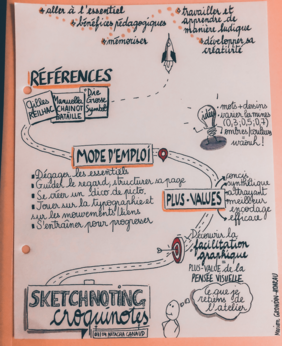 * aller à l'essentiel
* bénéfices pédagogiques
* mémoriser
* travailler et
apprendre de
manière ludique
* développer sa
créativité
RÉFÉRENCES
Gilles
Manuella
CHAINOT
BATAILLE
mots + dessins
varier
(0,3; 0,5; 0,7)
MODE D'EMPLOI
* Dégager les essentiels
* Guider le regard, structurer sa page
* Se créer un dico de picto
* Jouer sur la typographie et
sur les mouvements/liens
* S'entraîner pour progresser
PLUS-VALUES
concis
synthétique
attrayant
meilleur
encodage
efficace!
Découvrir la
facilitation
graphique
PLUS-VALUE de la
PENSÉE VISUELLE
Ce que je
retiens de
l'atelier
SKETCHNOTING,
croquinotes